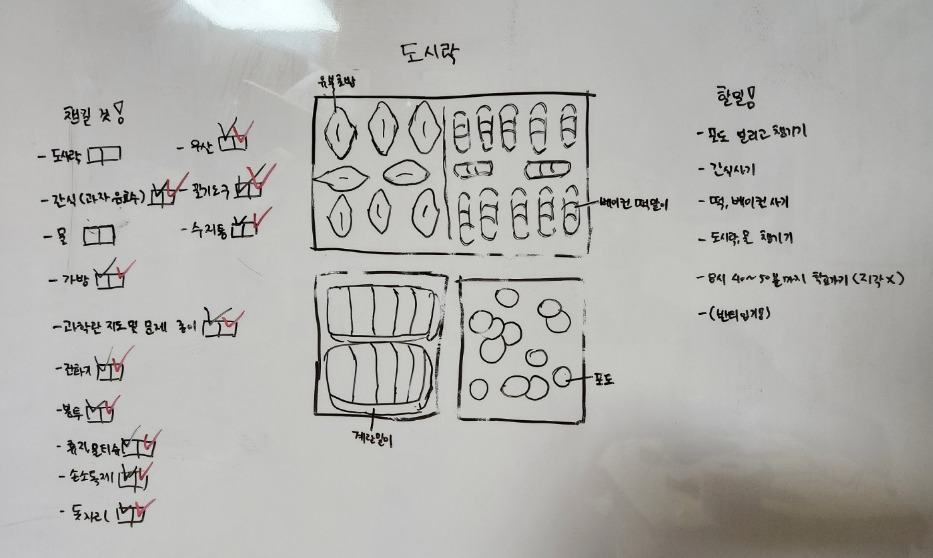 도시락
챙길 것!
- 도시락
- 간식(과자 음료수)
- 물
- 가방
- 과학관 지도 및 문제 종이
- 전화기
- 봉투
- 휴지, 물티슈
- 손소독제
- 돗자리
- 우산
- 필기도구
- 수저통
유부초밥
베이컨 떡말이
계란말이
포도
할일!
- 포도 얼리고 챙기기
- 간식사기
- 떡, 베이컨 사기
- 도시락, 물 챙기기
- 8시 40~50분까지 학교가기 (지각X)
- (반티입기!)